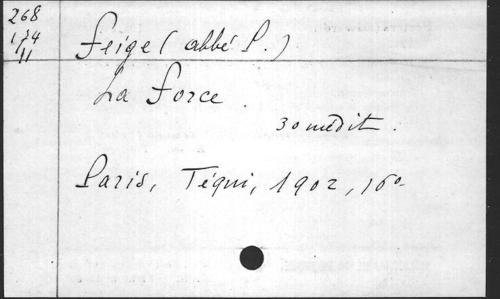 268
174
11
Feige (abbé P.)
La Force.
30 médit.
Paris, Téqui, 1902, 16º